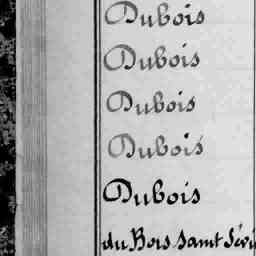 Dubois
Dubois
Dubois
Dubois
Dubois
du Bois Saint